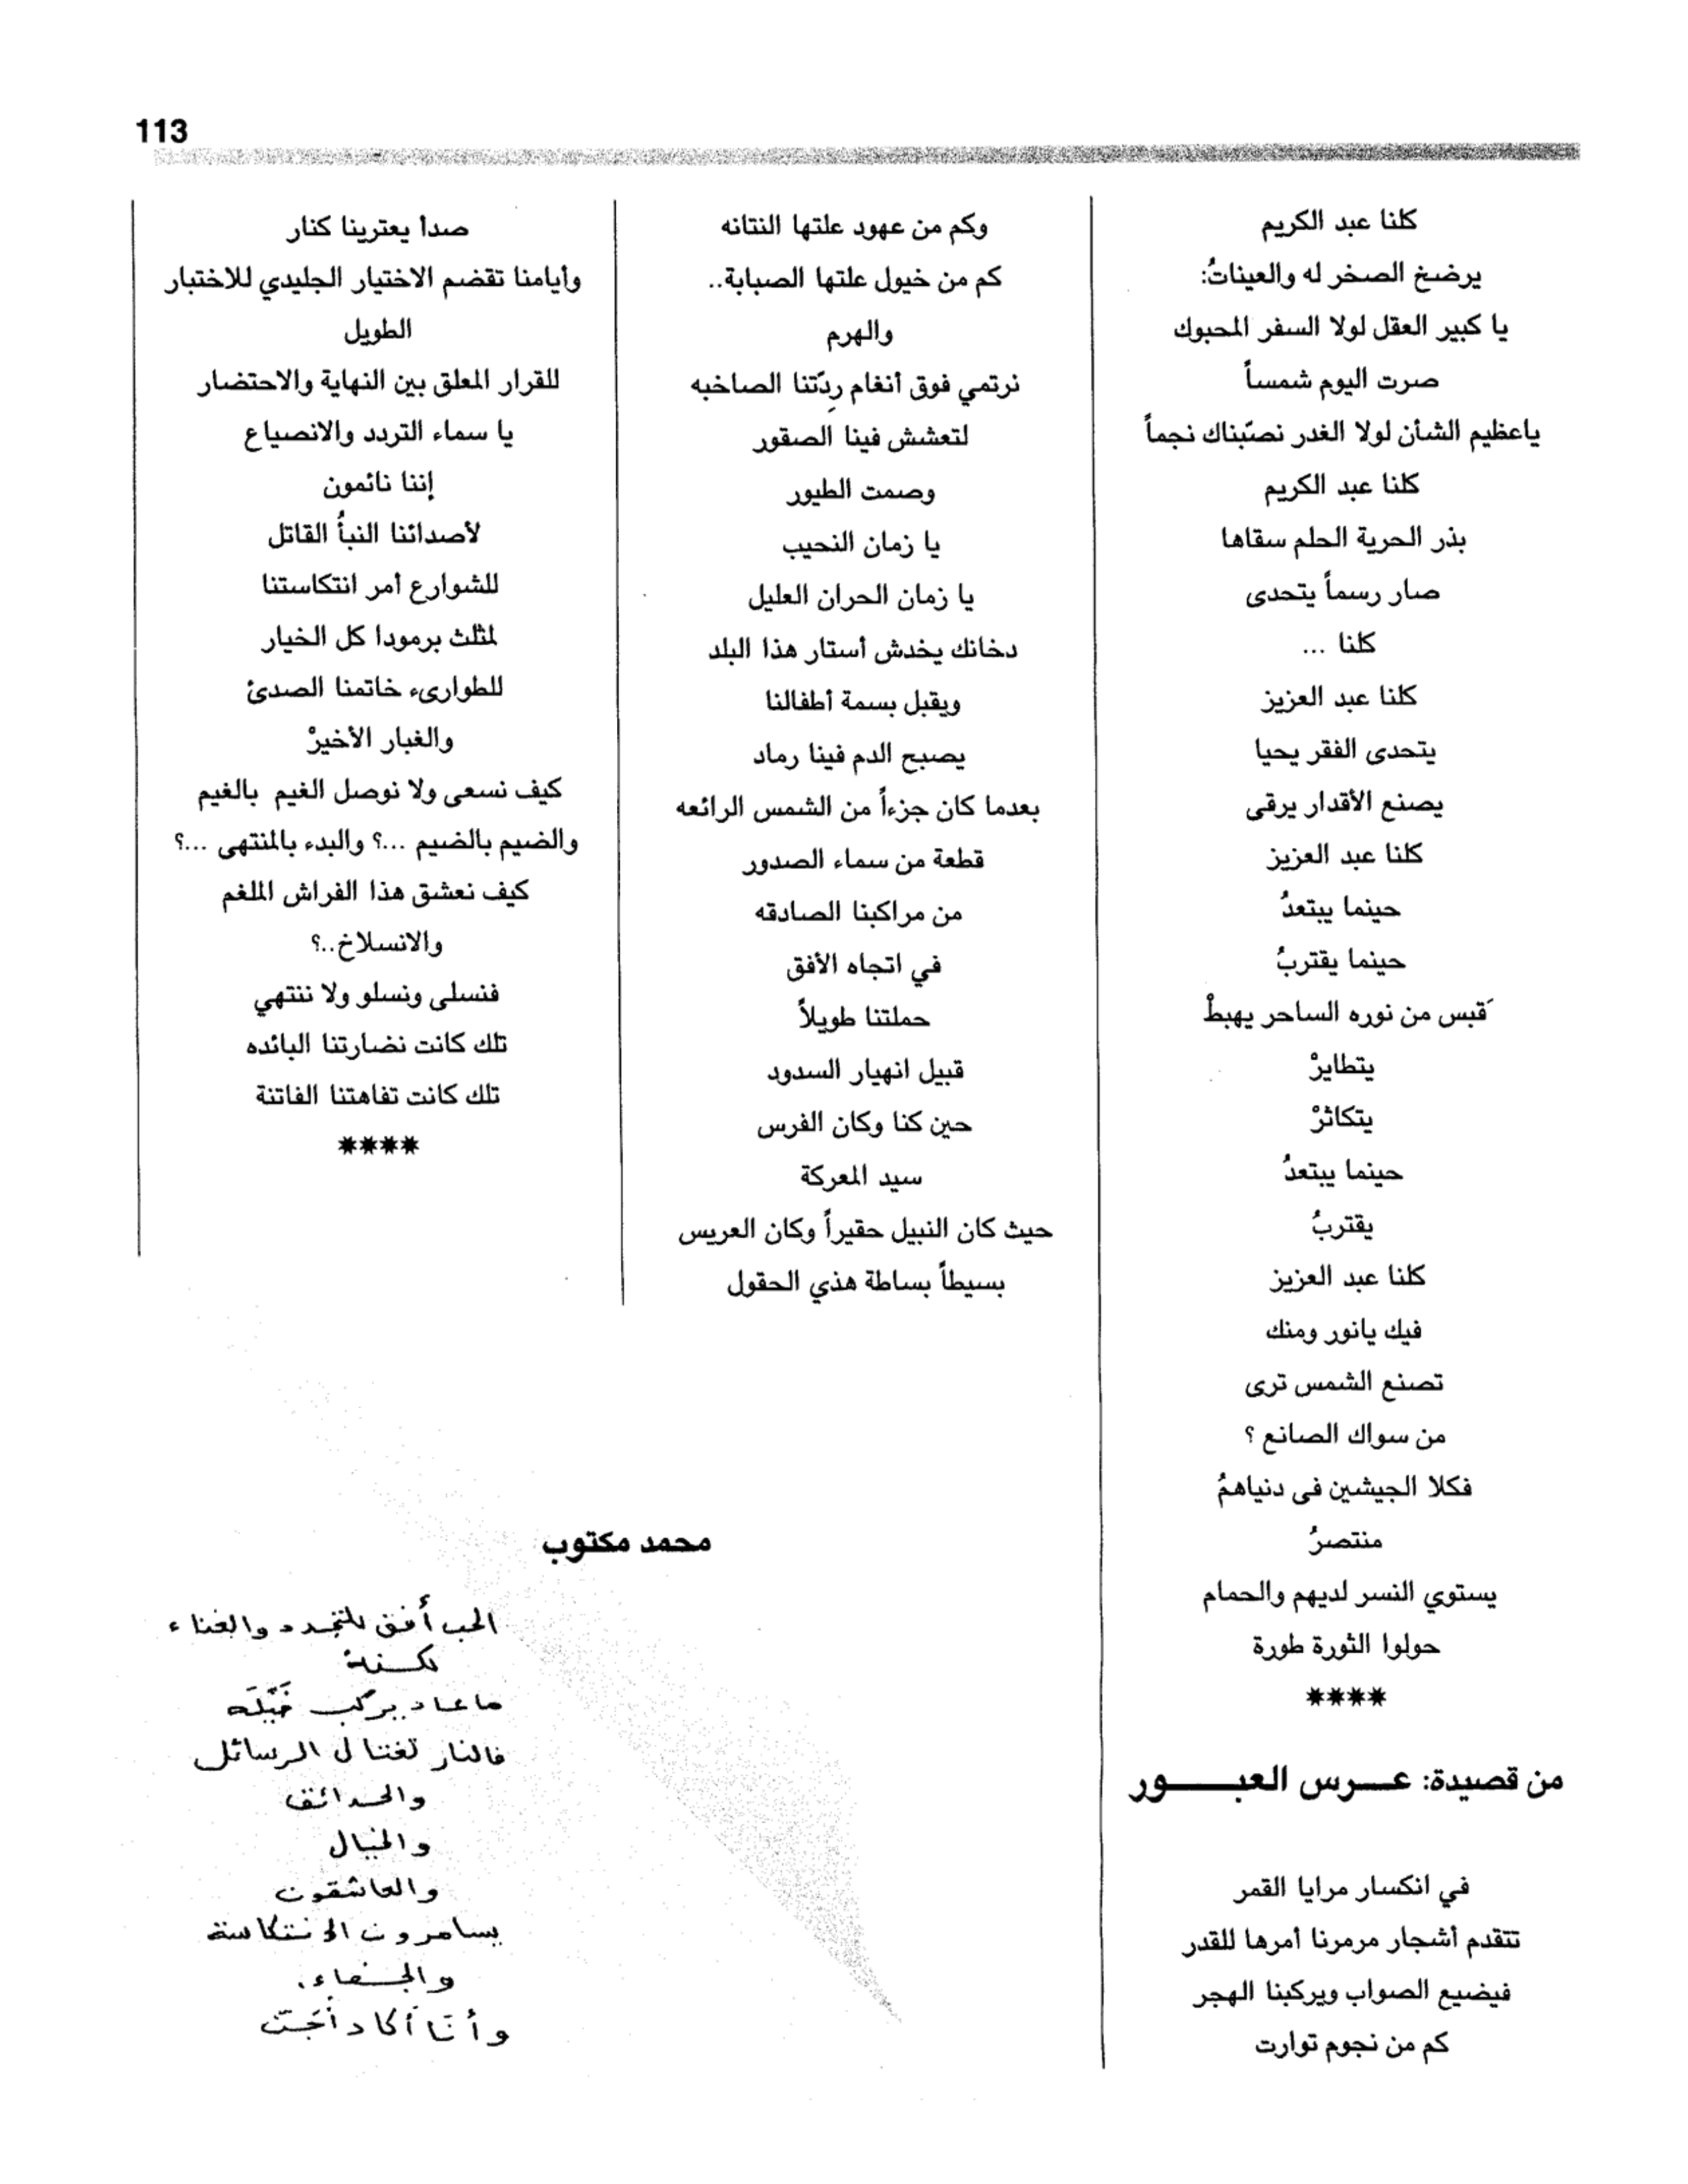 113
كلنا عبد الكريم
يرضخ الصخر له والعيناتُ:
يا كبير العقل لولا السفر المحبوك
صرت اليوم شمساً
ياعظيم الشأن لولا الغدر نصّبناك نجماً
كلنا عبد الكريم
بذر الحرية الحلم سقاها
صار رسماً يتحدى
كلنا ...
كلنا عبد العزيز
يتحدى الفقر يحيا
يصنع الأقدار يرقى
كلنا عبد العزيز
حينما يبتعدُ
حينما يقتربُ
َقبس من نوره الساحر يهبطْ
يتطايرْ
يتكاثرْ
حينما يبتعدُ
يقتربُ
كلنا عبد العزيز
فيك يانور ومنك
تصنع الشمس ترى
من سواك الصانع ؟
فكلا الجيشين فى دنياهمُ
منتصرُ
يستوي النسر لديهم والحمام
حولوا الثورة طورة
****
من قصيدة: عـــرس العبـــــور
في انكسار مرايا القمر
تتقدم أشجار مرمرنا أمرها للقدر
فيضيع الصواب ويركبنا الهجر
كم من نجوم توارت
وكم من عهود علتها النتانه
كم من خيول علتها الصبابة..
والهرم
نرتمي فوق أنغام ردّتنا الصاخبه
لتعشش فينا الصقور
وصمت الطيور
يا زمان النحيب
يا زمان الحران العليل
دخانك يخدش أستار هذا البلد
ويقبل بسمة أطفالنا
يصبح الدم فينا رماد
بعدما كان جزءاً من الشمس الرائعه
قطعة من سماء الصدور
من مراكبنا الصادقه
في اتجاه الأفق
حملتنا طويلاً
قبيل انهيار السدود
حين كنا وكان الفرس
سيد المعركة
حيث كان النبيل حقيراً وكان العريس
بسيطاً بساطة هذي الحقول
صدأ يعترينا كنار
وأيامنا تقضم الاختيار الجليدي للاختبار
الطويل
للقرار المعلق بين النهاية والاحتضار
يا سماء التردد والانصياع
إننا نائمون
لأصدائنا النبأُ القاتل
للشوارع أمر انتكاستنا
لمثلث برمودا كل الخيار
للطوارىء خاتمنا الصدئ
والغبار الأخيرْ
كيف نسعى ولا نوصل الغيم بالغيم
والضيم بالضيم ...؟ والبدء بالمنتهى ...؟
كيف نعشق هذا الفراش الملغم
والانسلاخ..؟
فنسلى ونسلو ولا ننتهي
تلك كانت نضارتنا البائده
تلك كانت تفاهتنا الفاتنة
****
محمد مكتوب
الحب أفق للتجدد والغناء
لكنهُ
ما عاد يركب خَيْلَه
فالنار تغتال الرسائل
والحدائق
والخيال
والعاشقون
يسامرون الانتكاسة
والجفاء.
وأنَا أكاد أُجَنّ